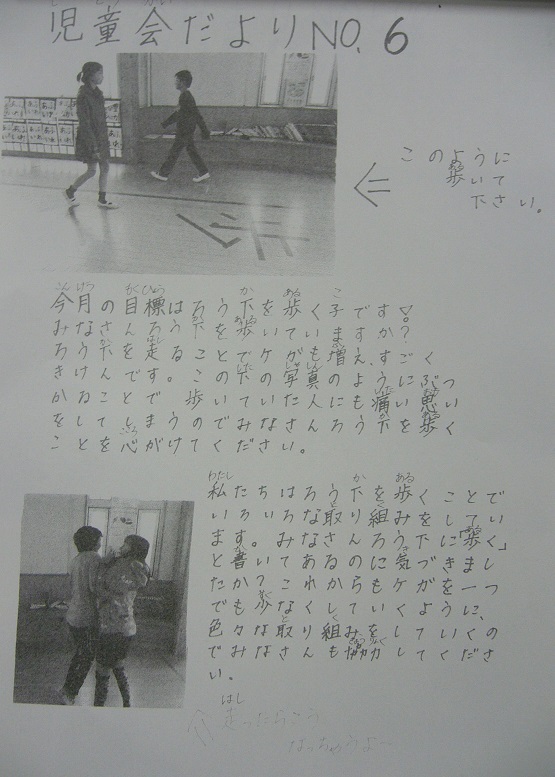 児童会だよりNO.6
このように
歩いて
下さい。
今月の目標はろう下を歩く子です♡。
みなさんろう下を歩いていますか？
ろう下を走ることでケガも増え、すごく
きけんです。下の写真のようにぶつ
人にも痛い思い
をしてしまうのでみなさんろう下を歩く
ことを心がけてください。
私たちはろう下を歩くことで
いろいろな取り組みをしてい
ます。みなさんろう下に「歩く」
と書いてあるのに気づきまし
たか？これからもケガを一つ
でも少なくしていくように、
色々な取り組みをしていくの
でみなさんも協力してくださ
い。
走ったらこう
なっちゃうよ〜